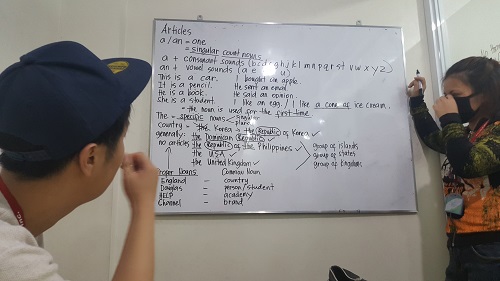 Articles
a/an = one
= singular count nouns
a + consonant sounds (b c d f g h j k l m n p q r s t v w x y z)
an + vowel sounds (a e i o u)
This is a car. I bought an apple.
It is a pencil. He sent an email.
He is a book. He said an opinion.
She is a student. I like an egg. / I like a cone of ice cream.
= the noun is used for the first time.
The = specific nouns singular
plural
country = the Korea = the Republic of Korea ✓
generally: the Dominican Republic ✓
no articles the Republic of the Philippines ✓ group of islands
the U.S.A ✓ group of states
the United Kingdom ✓ group of kingdoms
Proper Nouns Common Noun
England – country
Douglas – person/student
HELP – academy
Channel – brand